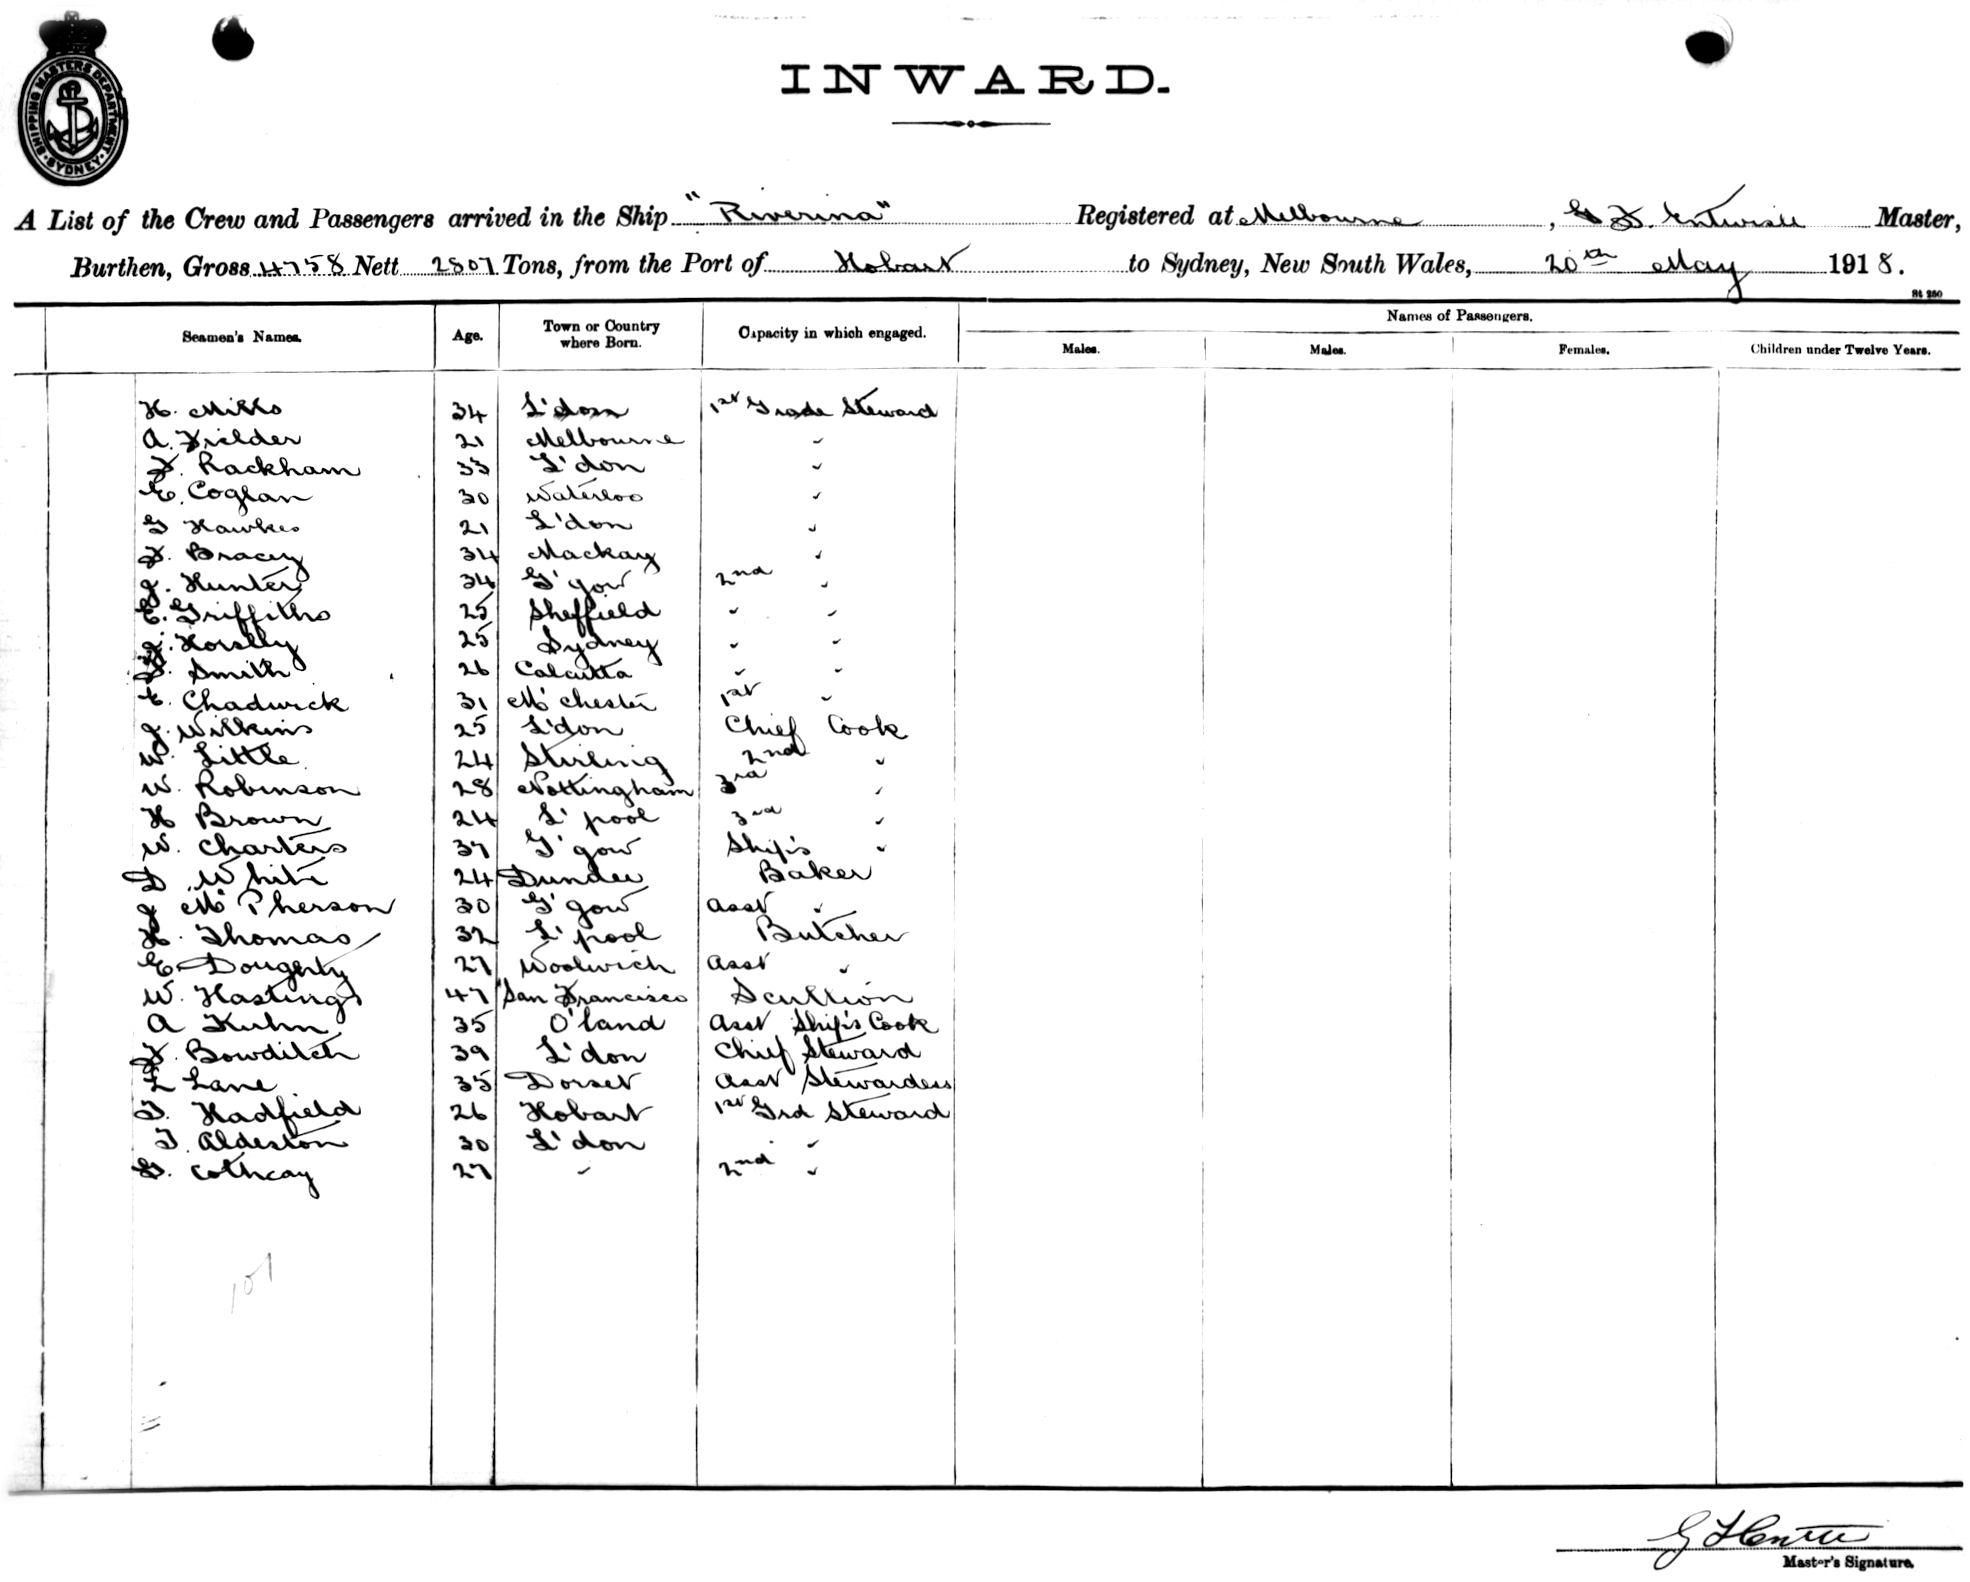 SHIPPING MASTERS DEPARTMENT · SYDNEY ·
INWARD.
A List of the Crew and Passengers arrived in the Ship "Riverina" Registered at Melbourne, G F. Entwisle Master,
Burthen, Gross 4758 Nett 2807 Tons, from the Port of Hobart to Sydney, New South Wales, 20th May 1918.
St 250
Seamen's Names. Age. Town or Country where Born. Capacity in which engaged. Names of Passengers.
Males. Males. Females. Children under Twelve Years.
H. Mills 34 L'don 1st Grade Steward
A. Fielder 21 Melbourne "
F. Rackham 33 L'don "
E. Coglan 30 Waterloo "
G Hawkes 21 L'don "
F. Bracey 34 Mackay "
J. Hunter 34 G'gow 2nd "
E. Griffiths 25 Sheffield " "
J. Horslly 25 Sydney " "
F. Smith 26 Calcutta " "
E. Chadwick 31 M'chester 1st "
J. Wilkins 25 L'don Chief Cook
W. Little 24 Stirling 2nd "
W. Robinson 28 Nottingham 3rd "
H Brown 24 L'pool 3rd "
W. Charters 37 G'gow Ship's "
D White 24 Dundee Baker
J McPherson 30 G'gow Asst "
H. Thomas 32 L'pool Butcher
E. Dougerty 27 Woolwich Asst "
W. Hastings 47 San Francisco Scullion
A Kuhn 35 O'land Asst Ship's Cook
F. Bowditch 39 L'don Chief Steward
L Lane 35 Dorset Asst Stewardess
T. Hadfield 26 Hobart 1st Grd Steward
T. Aldeston 30 L'don "
G. Cothcay 27 " 2nd "
107
Master's Signature.